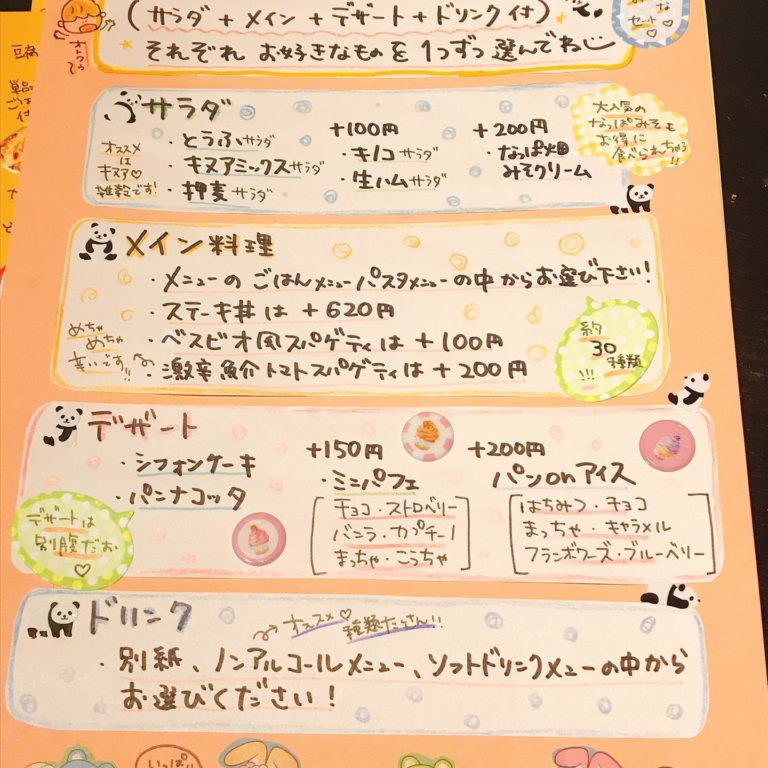 (サラダ+メイン+デザート+ドリンク付)
それぞれ お好きなものを1つずつ選んでね
セット♡
サラダ
オススメ
は
キヌア♡
雑穀です!
・とうふサラダ
・キヌアミックスサラダ
・押麦サラダ
+100円
・キノコサラダ
・生ハムサラダ
+200円
・なっぱ畑
みそクリーム
大人気の
なっぱみそも
お得に
食べられちゃう!!
メイン料理
・メニューの ごはんメニューパスタメニューの中からお選び下さい!
・ステーキ丼は +620円
・ベスビオ風スパゲティは +100円
・激辛魚介トマトスパゲティは +200円
めちゃ
めちゃ
辛いです!!
約
30種類
!!!
デザート
・シフォンケーキ
・パンナコッタ
デザートは
別腹だお
♡
+150円
・ミニパフェ
チョコ・ストロベリー
バニラ・カプチーノ
まっちゃ・こうちゃ
+200円
パンonアイス
はちみつ・チョコ
まっちゃ・キャラメル
フランボワーズ・ブルーベリー
ドリンク
オススメ♡
種類たくさん!!
・別紙、ノンアルコールメニュー、ソフトドリンクメニューの中から
お選びください!
いっぱい